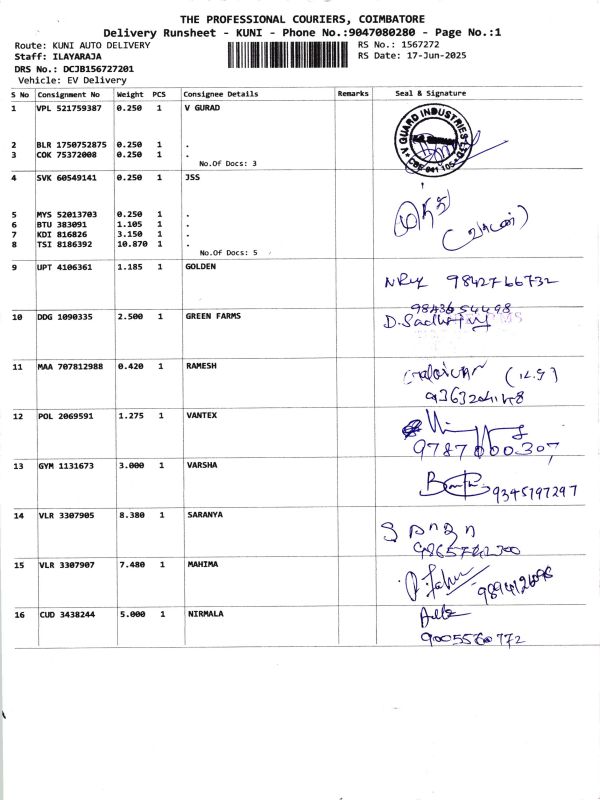 THE PROFESSIONAL COURIERS, COIMBATORE
Delivery Runsheet - KUNI - Phone No.:9047080280 - Page No.:1
Route: KUNI AUTO DELIVERY
RS No.: 1567272
Staff: ILAYARAJA
RS Date: 17-Jun-2025
DRS No.: DCJB156727201
Vehicle: EV Delivery
S No Consignment No Weight PCS Consignee Details Remarks Seal & Signature
1 VPL 521759387 0.250 1 V GURAD
V GUARD INDUSTRIES LTD
CBE-641 105
2 BLR 1750752875 0.250 1 .
3 COK 75372008 0.250 1 .
No.Of Docs: 3
4 SVK 60549141 0.250 1 JSS
5 MYS 52013703 0.250 1 .
6 BTU 383091 1.105 1 .
7 KDI 816826 3.150 1 .
8 TSI 8186392 10.870 1 .
No.Of Docs: 5
9 UPT 4106361 1.185 1 GOLDEN
9842766732
10 DDG 1090335 2.500 1 GREEN FARMS
11 MAA 707812988 0.420 1 RAMESH
12 POL 2069591 1.275 1 VANTEX
9787000307
13 GYM 1131673 3.000 1 VARSHA
9345197297
14 VLR 3307905 8.380 1 SARANYA
15 VLR 3307907 7.480 1 MAHIMA
16 CUD 3438244 5.000 1 NIRMALA
9005560772